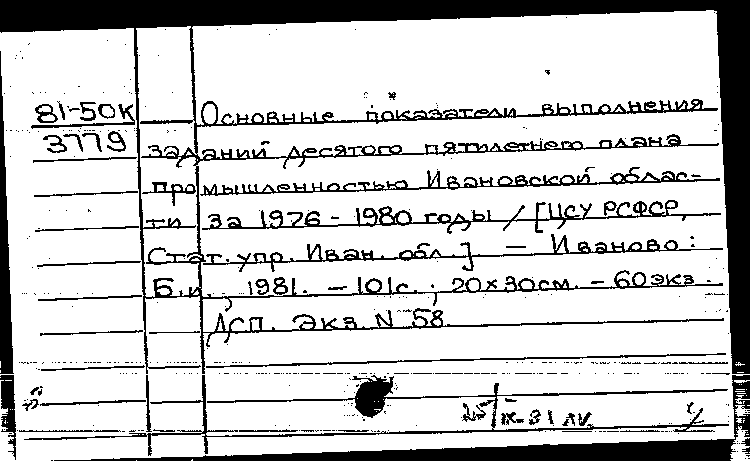 81-50К Основные показатели выполнения
3779 заданий десятого пятилетнего плана
промышленностью Ивановской облас-
ти за 1976 - 1980 годы / [ЦСУ РСФСР,
Стат. упр. Иван. обл.] — Иваново :
Б.и., 1981. - 101с. ; 20×30см. - 60экз.
ДСП. Экз. N 58.
25/IX-81